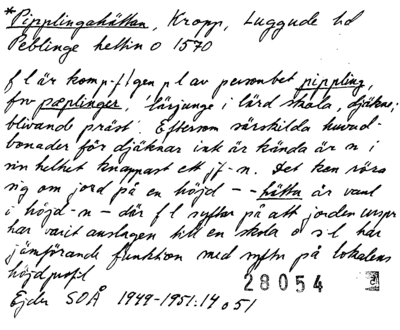 *Pipplingahättan, Kropp, Luggude hd
Peblinge hettin o 1570
f l är komp. f l gen pl av personbet pippling,
fsv pæplinger, 'lärjunge i lärd skola, djäkne;
blivande präst'. Eftersom särskilda huvud-
bonader för djäknar inte är kända är n i
sin helhet knappast ett jf-n. Det kan röra
sig om jord på en höjd -- hätta är vanl
i höjd-n - där f l syftar på att jorden urspr
har varit anslagen till en skola o s l har
jämförande funktion med syftn på lokalens
höjdprofil
28054
Ejder SOÅ 1949-1951:14 o 51